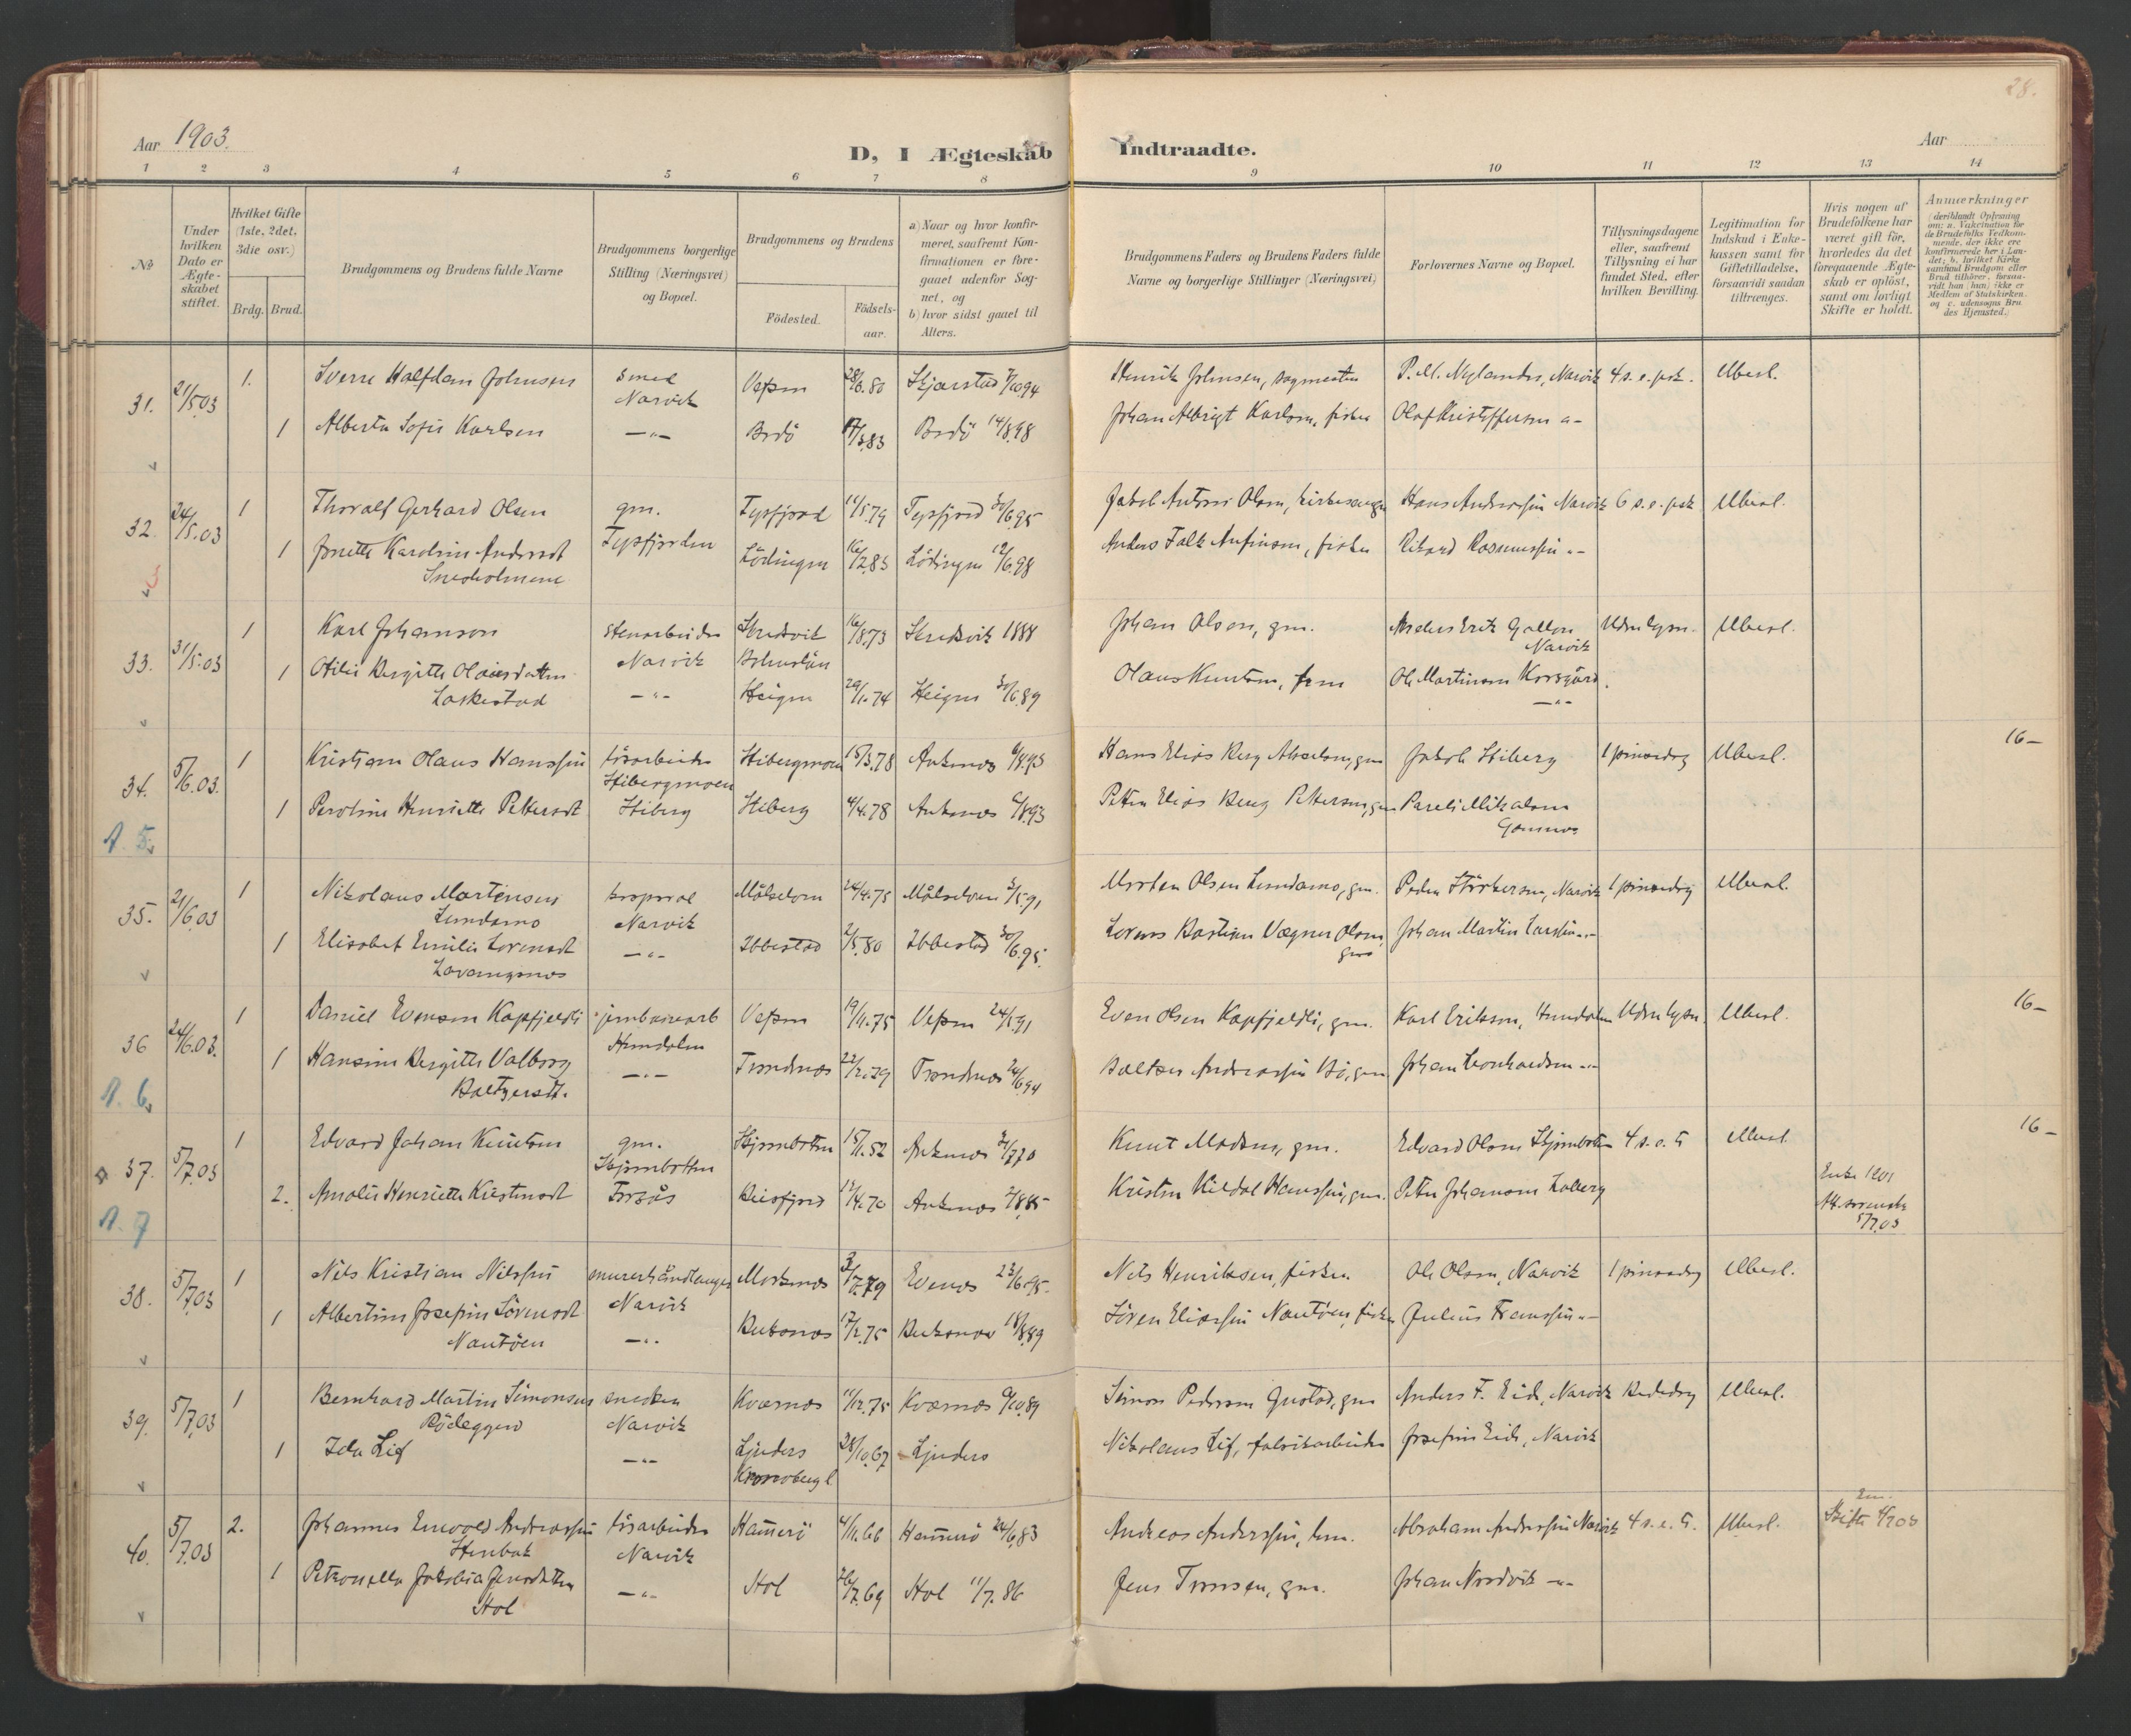 28.
Aar 1903.
D, I Ægteskab Indtraadte.
Aar
1 2 3 4 5 6 7 8 9 10 11 12 13 14
No
Under hvilken Dato er Ægteskabet stiftet.
Hvilket Gifte (1ste, 2det, 3die osv.)
Brdg. Brud.
Brudgommens og Brudens fulde Navne
Brudgommens borgerlige Stilling (Næringsvei) og Bopæl.
Brudgommens og Brudens
Födested.
Födselsaar.
a) Naar og hvor konfirmeret, saafremt Konfirmationen er foregaaet udenfor Sognet, og
b) hvor sidst gaaet til Alters.
Brudgommens Faders og Brudens Faders fulde Navne og borgerlige Stillinger (Næringsvei)
Forlovernes Navne og Bopæl.
Tillysningsdagene eller, saafremt Tillysning ei har fundet Sted, efter hvilken Bevilling.
Legitimation for Indskud i Enkekassen samt for Giftetilladelse, forsaavidt saadan tiltrænges.
Hvis nogen af Brudefolkene har været gift för, hvorledes da det foregaaende Ægteskab er oplöst, samt om lovligt Skifte er holdt.
Anmærkninger
(deriblandt Oplysning om: a. Vakcination for de Brudefolks Vedkommende, der ikke ere konfirmerede her i Landet; b. hvilket Kirkesamfund Brudgom eller Brud tilhörer, forsaavidt han (hun) ikke er Medlem af Statskirken, og c. udensogns Brudes Hjemsted.)
31. 21/5.03 1. Sverre Halfdan Johnsen smed Narvik Vefsen 28/6.80 Skjerstad 7/10.94 Henrik Johnsen, sagmester P. M. Nylander, Narvik 4 s. e. psk. Ubesl.
1 Alberta Sofie Karlsen —"— Bodö 17/3.83 Bodö 14/8.98 Johan Albrigt Karlsen, fisker Olaf Kristoffersen "-
32. 24/5.03 1 Thoralf Gerhard Olsen gm. Tysfjorden Tysfjord 14/5.79 Tysfjord 30/6.95 Jakob Antoni Olsen, kirkesanger Hans Anderssen Narvik 6 s. e. psk Ubesl.
1 Josette Karoline Andersdt Lödingen 16/2.83 Lödingen 12/6.98 Anders Falk Anfinsen, fisker Rikard Rasmussen "-
Snesholmene
33. 31/5.03 1 Karl Johanson stenarbeider Narvik 16/8.73 1888 Johan Olson, gm. Narvik Uden lysn. Ubesl.
1 Otilie Bergitte Olausdatter —"— Steigen 29/1.74 Steigen 30/6.89 Olaus Knutsen, Ole Martinsen Korsgård
Laskestad —"—
34. 5/6.03. 1 Kristian Olaus Hanssen lösarbeider Stibergmoen Stibergmoen 15/3.78 Ankenes 6/8.93 Hans Elias Berg Absalonsen, gm Jakob Stiberg 1 pinsedag Ubesl. 16—
1 Peroline Henriette Pettersdt Stiberg Stiberg 4/4.78 Ankenes 6/8.93 Petter Elias Berg Pettersen, gm Pareli Mikalsen
A. 5.
35. 21/6.03 1 Nikolaus Martinsen korporal Narvik Målselven 24/4.75 Målselven 3/5.91 Morten Olsen Lundamo, gm. Peder Störkersen, Narvik 1 pinsedag Ubesl.
Lundamo
1 Elisabet Emilie Lorensdt —"— Ibbestad 2/5.80 Ibbestad 30/6.95. Lorens Bastian Vægner Olsen, Johan Martin Larsen "-
Lavangsnes
36 24/6.03. 1 Daniel Evensen Kapfjeldli jernbanearb Hundalen Vefsen 19/11.75 Vefsen 24/5.91 Even Olsen Kapfjeldli, gm. Karl Erikson, Hundalen Uden lysn. Ubesl. 16—
1 Hansine Bergitte Valborg —"— Trondnes 22/12.79 Trondnes 24/6.94 Baltser Andreassen Bö, gm. Johan Leonhardsen "-
Baltzersdt.
A. 6.
37. 5/7.03 1 Edvard Johan Knutsen gm. Skjombotten Skjombotten 15/1.52 Ankenes 3/7.70 Knut Madsen, gm. Edvard Olsen Skjombotten 4 s. e. t Ubesl. 16—
2. Amalie Henriette Kristensdt Forsås Beisfjord 12/4.70 Ankenes 2/8.85 Kristen Kildal Hanssen, gm. Petter Johansen Enke 1901
5/7.03
A. 7
38. 5/7.03 1 Nils Kristian Nilssen murerhåndlanger Narvik 31/7.79 Evenes 23/6.95. Nils Henriksen, fisker Ole Olsen, Narvik 1 pinsedag Ubesl.
1 Albertine Josefine Sörensdt —"— Buksnes 17/2.75 Buksnes 18/8.89 Sören Eliassen Nautöen, fisker Julius Franssen "-
Nautöen
39. 5/7.03 1 Bernhard Martin Simonsen snedker Narvik Kværnes 11/12.75 Kværnes 6/10.89 Simon Pedersen Gustad, gm Anders F. Eide, Narvik Bededag Ubesl.
Rödeggen
1 Ida Lif —"— Ljuders Kronoberg l 28/10.67 Ljuders Nikolaus Lif, fabrikarbeider Josefine Eide, Narvik
40. 5/7.03 2. Johannes Enevold Andreassen lösarbeider Narvik Hamerö 4/11.66 Hamerö 24/6.83 Andreas Anderssen, hm. Abraham Anderssen Narvik 4 s. e. t. Ubesl. Em. Skifte 4/7.03
Stenbak
1 Petronella Jakobia Jensdatter —"— Hol 26/7.69 Hol 11/7.86 Jens Tronsen, gm. Johan Nordvik —"—
Hol